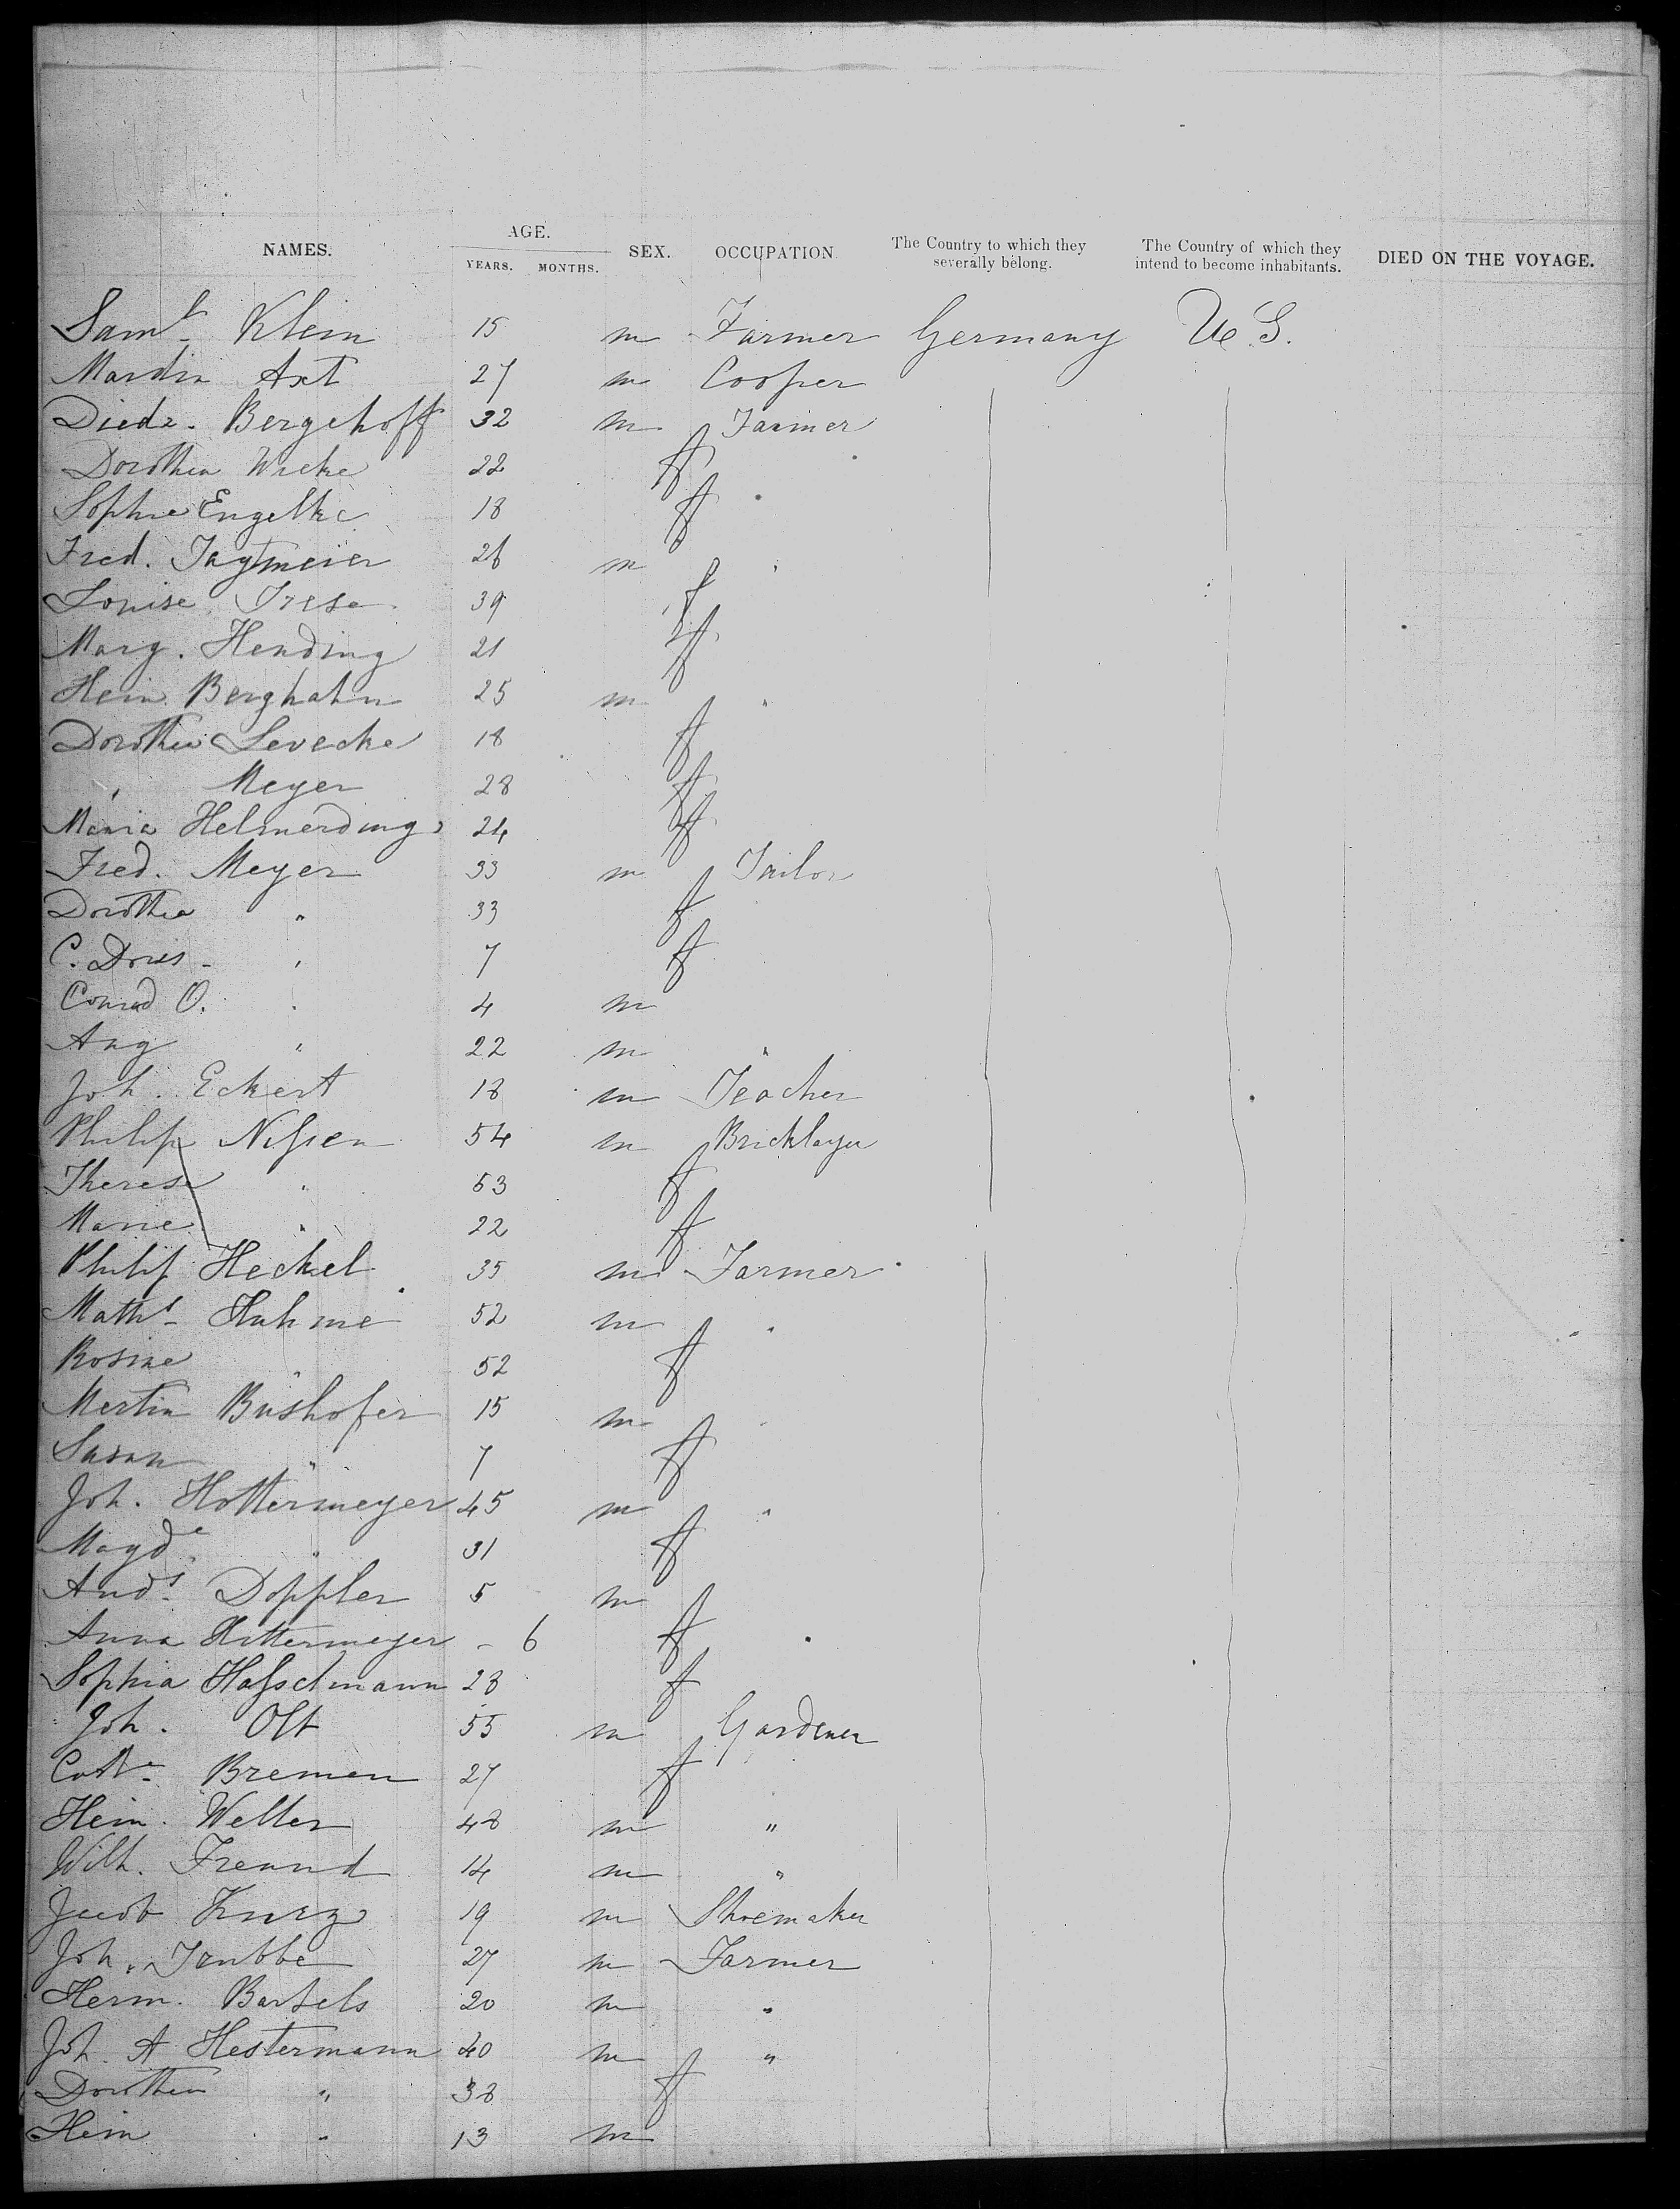 AGE.
NAMES. YEARS. MONTHS. SEX. OCCUPATION The Country to which they severally belong. The Country of which they intend to become inhabitants. DIED ON THE VOYAGE.
Saml. Klein 15 m Farmer Germany U.S.
Martin Axt 27 m Cooper
Diedr. Bergehoff 32 m Farmer
Dorothea Wicke 22 f
Sophie Engelke 18 f
Fred. Tagtmeier 26 m
Louise Frese 39 f
Marg. Hending 21 f
Hein. Berghahn 25 m "
Dorothea Levecke 18 f
" Meyer 28 f
Maria Helmerding 24 f
Fred. Meyer 33 m Tailor
Dorothea " 33 f
C. Doris " 7 f
Conrad O. " 4 m
Aug " 22 m "
Joh. Eckert 18 m Teacher
Philip Nissen 54 m Bricklayer
Therese " 53 f
Marie " 22 f
Philip Heckel 35 m Farmer
Maths. Huhme 52 m "
Rosine " 52 f
Martin Bushofer 15 m "
Susan " 7 f
Joh. Hottermeyer 45 m "
Magde. " 31 f
Ands. Doppler 5 m
Anna Hottermeyer - 6 f
Sophia Hasselmann 23 f
Joh. Olt 55 m Gardener
Cathe. Bremen 27 f
Hein. Welter 48 m "
Wilh. Freund 14 m "
Jacob Kurz 19 m Shoemaker
Joh. Trubbe 27 m Farmer
Herm. Bartels 20 m "
Joh. A Hestermann 40 m "
Dorothea " 38 f
Hein " 13 m